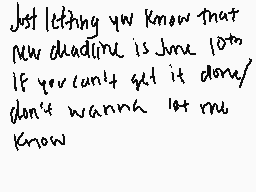 Just letting yw know that
new deadline is June 10th
If you can't get it done/
don't wanna let me
know